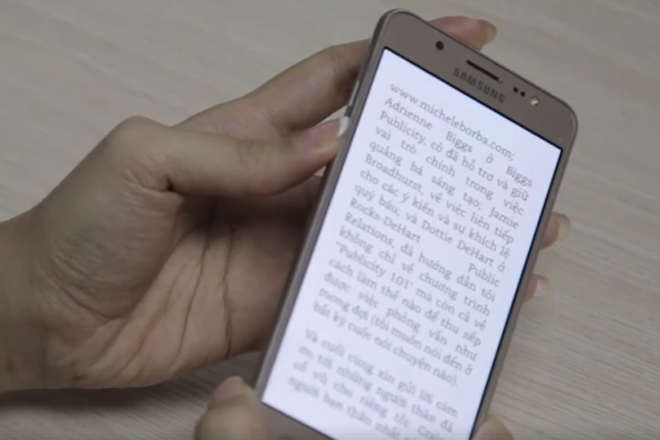 SAMSUNG
www.micheleborba.com;
Adrienne Biggs ở Biggs
Publicity, cô đã hỗ trợ và giữ
vai trò chính trong việc
quảng bá sáng tạo; Jamie
Broadhurst, về việc liên tiếp
cho các ý kiến và sự khích lệ
quý báu; và Dottie DeHart ở
Rocks-DeHart Public
Relations, đã hướng dẫn tôi
không chỉ về chương trình
"Publicity 101" mà còn cả về
cách làm thế nào để thu xếp
được việc phỏng vấn như
mong đợi (tôi muốn nói đến ở
bất kỳ cuộc nói chuyện nào).
Và cuối cùng xin gửi lời cảm
ơn tới những người thân đã
cổ vũ cho riêng tôi: Craig
người bạn thân nhất